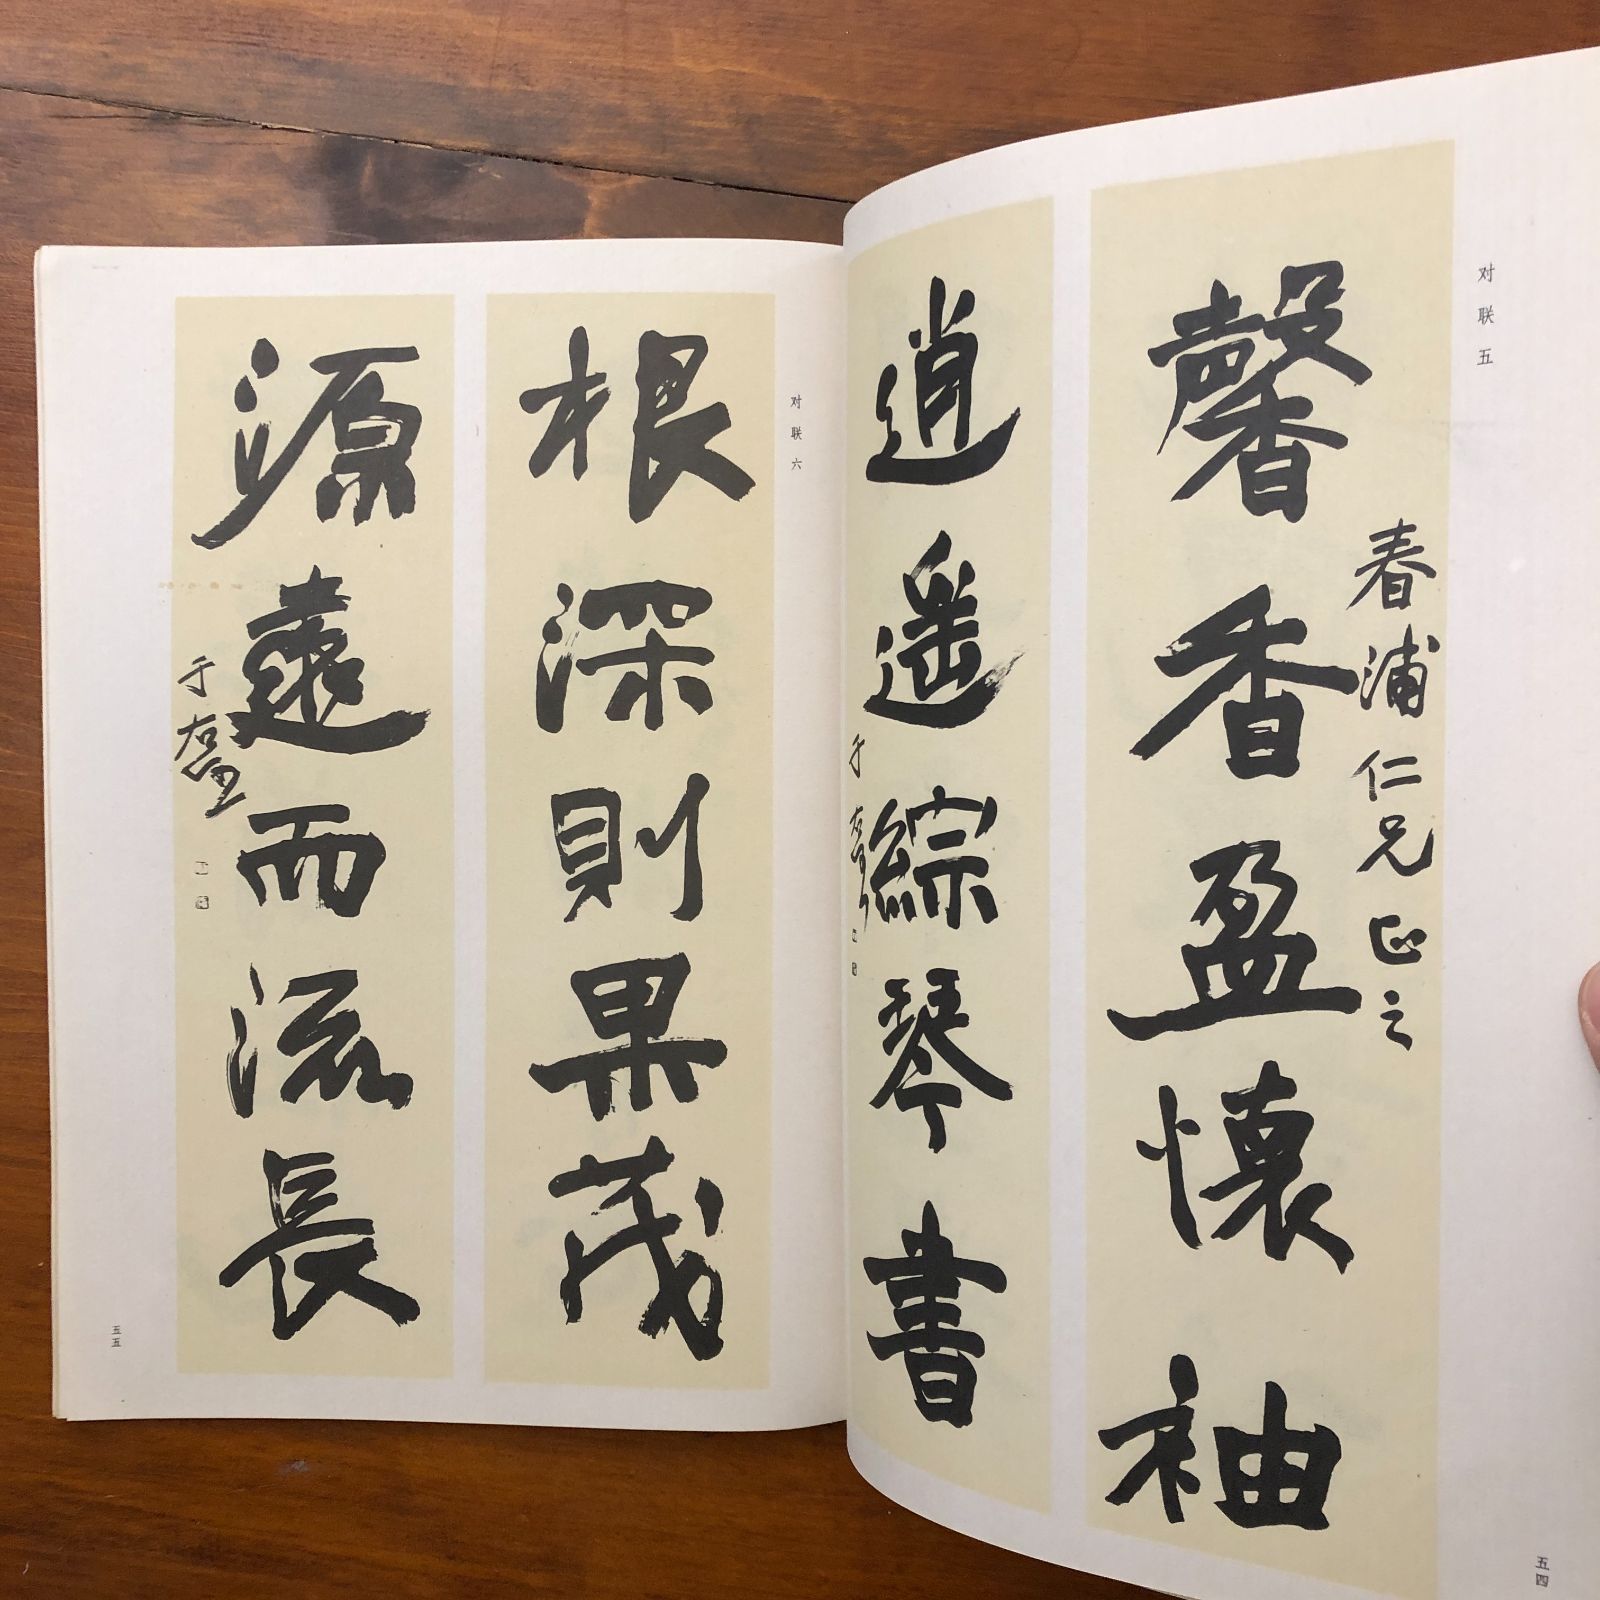 对联五
馨香盈懷袖
春浦仁兄正之
逍遥綜琴書
于右任
五四
对联六
根深則果茂
源遠而流長
于右任
五五